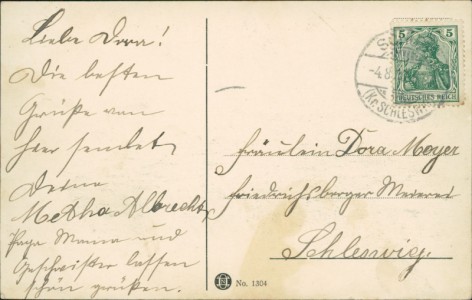 Liebe Dora!
Die besten
Grüße von
hier sendet
Deine
Metha Albrecht
Papa Mama und
Geschwister lassen
schön grüßen.
Fräulein Dora Meyer
Friedrichsberger Meierei
Schleswig.
No. 1304
5 5
DEUTSCHES REICH
-4.8.
(Kr. SCHLESW